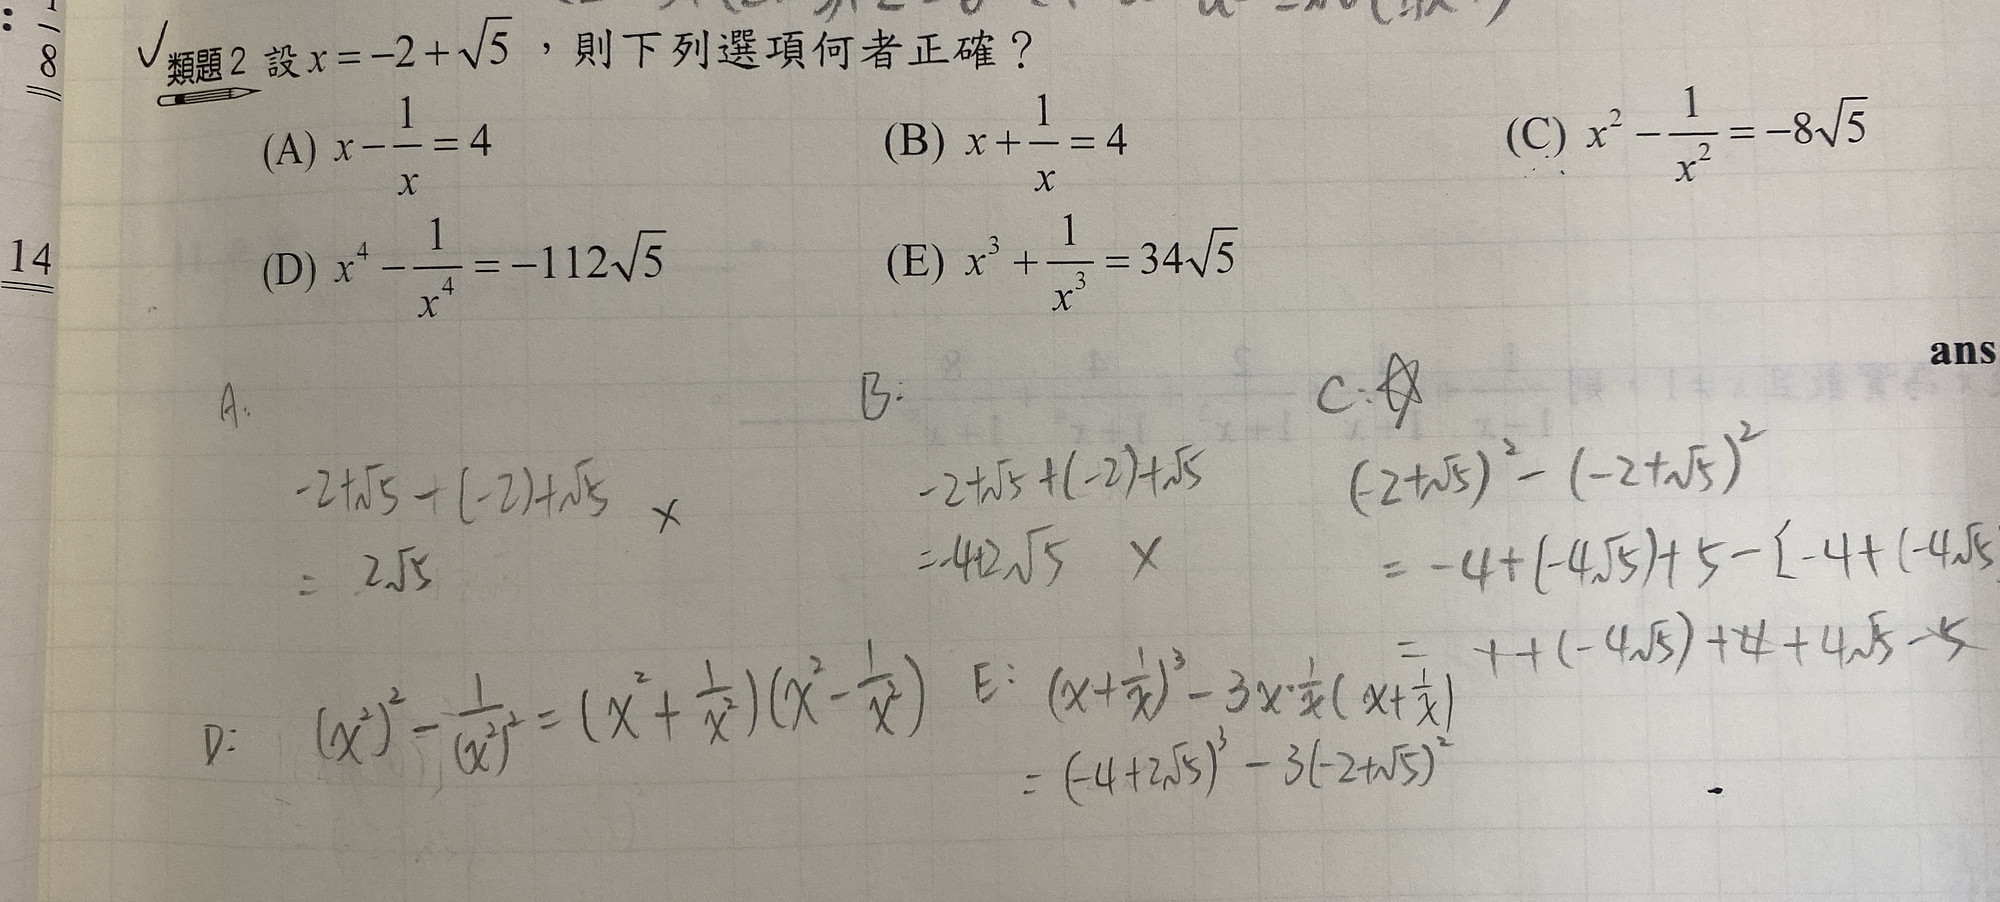 1
8
14
類題2 設 x = -2 + √5 ，則下列選項何者正確？
(A) x - 1/x = 4 (B) x + 1/x = 4 (C) x² - 1/x² = -8√5
(D) x⁴ - 1/x⁴ = -112√5 (E) x³ + 1/x³ = 34√5
ans
A:
-2+√5 - (-2)+√5 ×
= 2√5
B:
-2+√5 + (-2)+√5
=-4+2√5 ×
C:
(-2+√5)² - (-2+√5)²
= -4+(-4√5)+5-[-4+(-4√5
= 1+(-4√5)+4+4√5-5
D: (x²)² - 1/(x²)² = (x² + 1/x²)(x² - 1/x²)
E: (x+1/x)³ - 3x·1/x(x+1/x)
= (-4+2√5)³ - 3(-2+√5)²